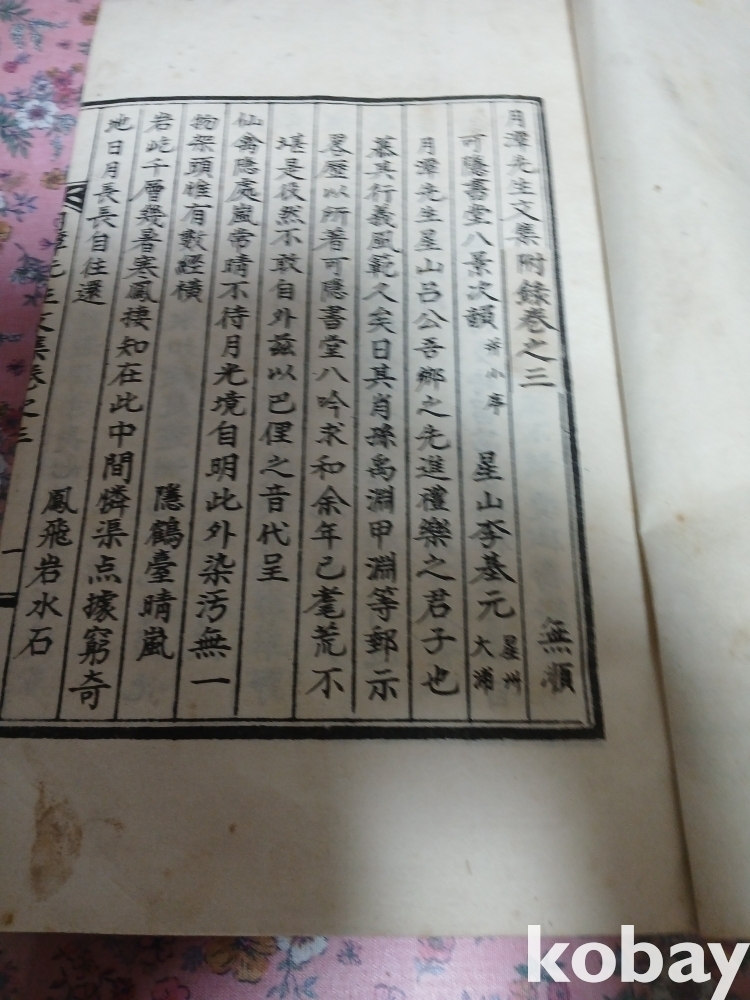 月潭先生文集附錄卷之三
無順
可隱書堂八景次韻 并小序 星山李基元 星州大浦
月潭先生星山呂公吾鄉之先進禮樂之君子也
慕其行義風範久矣日其肖孫禹淵甲淵等郵示
畧歷以所著可隱書堂八吟求和余年已耄荒不
堪是役然不敢自外茲以巴俚之音代呈
仙禽隱處嵐常晴不待月光境自明此外染汚無一
物架頭惟有數經橫
隱鶴臺晴嵐
岩屹千層幾暑寒鳳棲知在此中間憐渠点據窮奇
地日月長長自住還
鳳飛岩水石
月潭先生文集卷之三
一
kobay